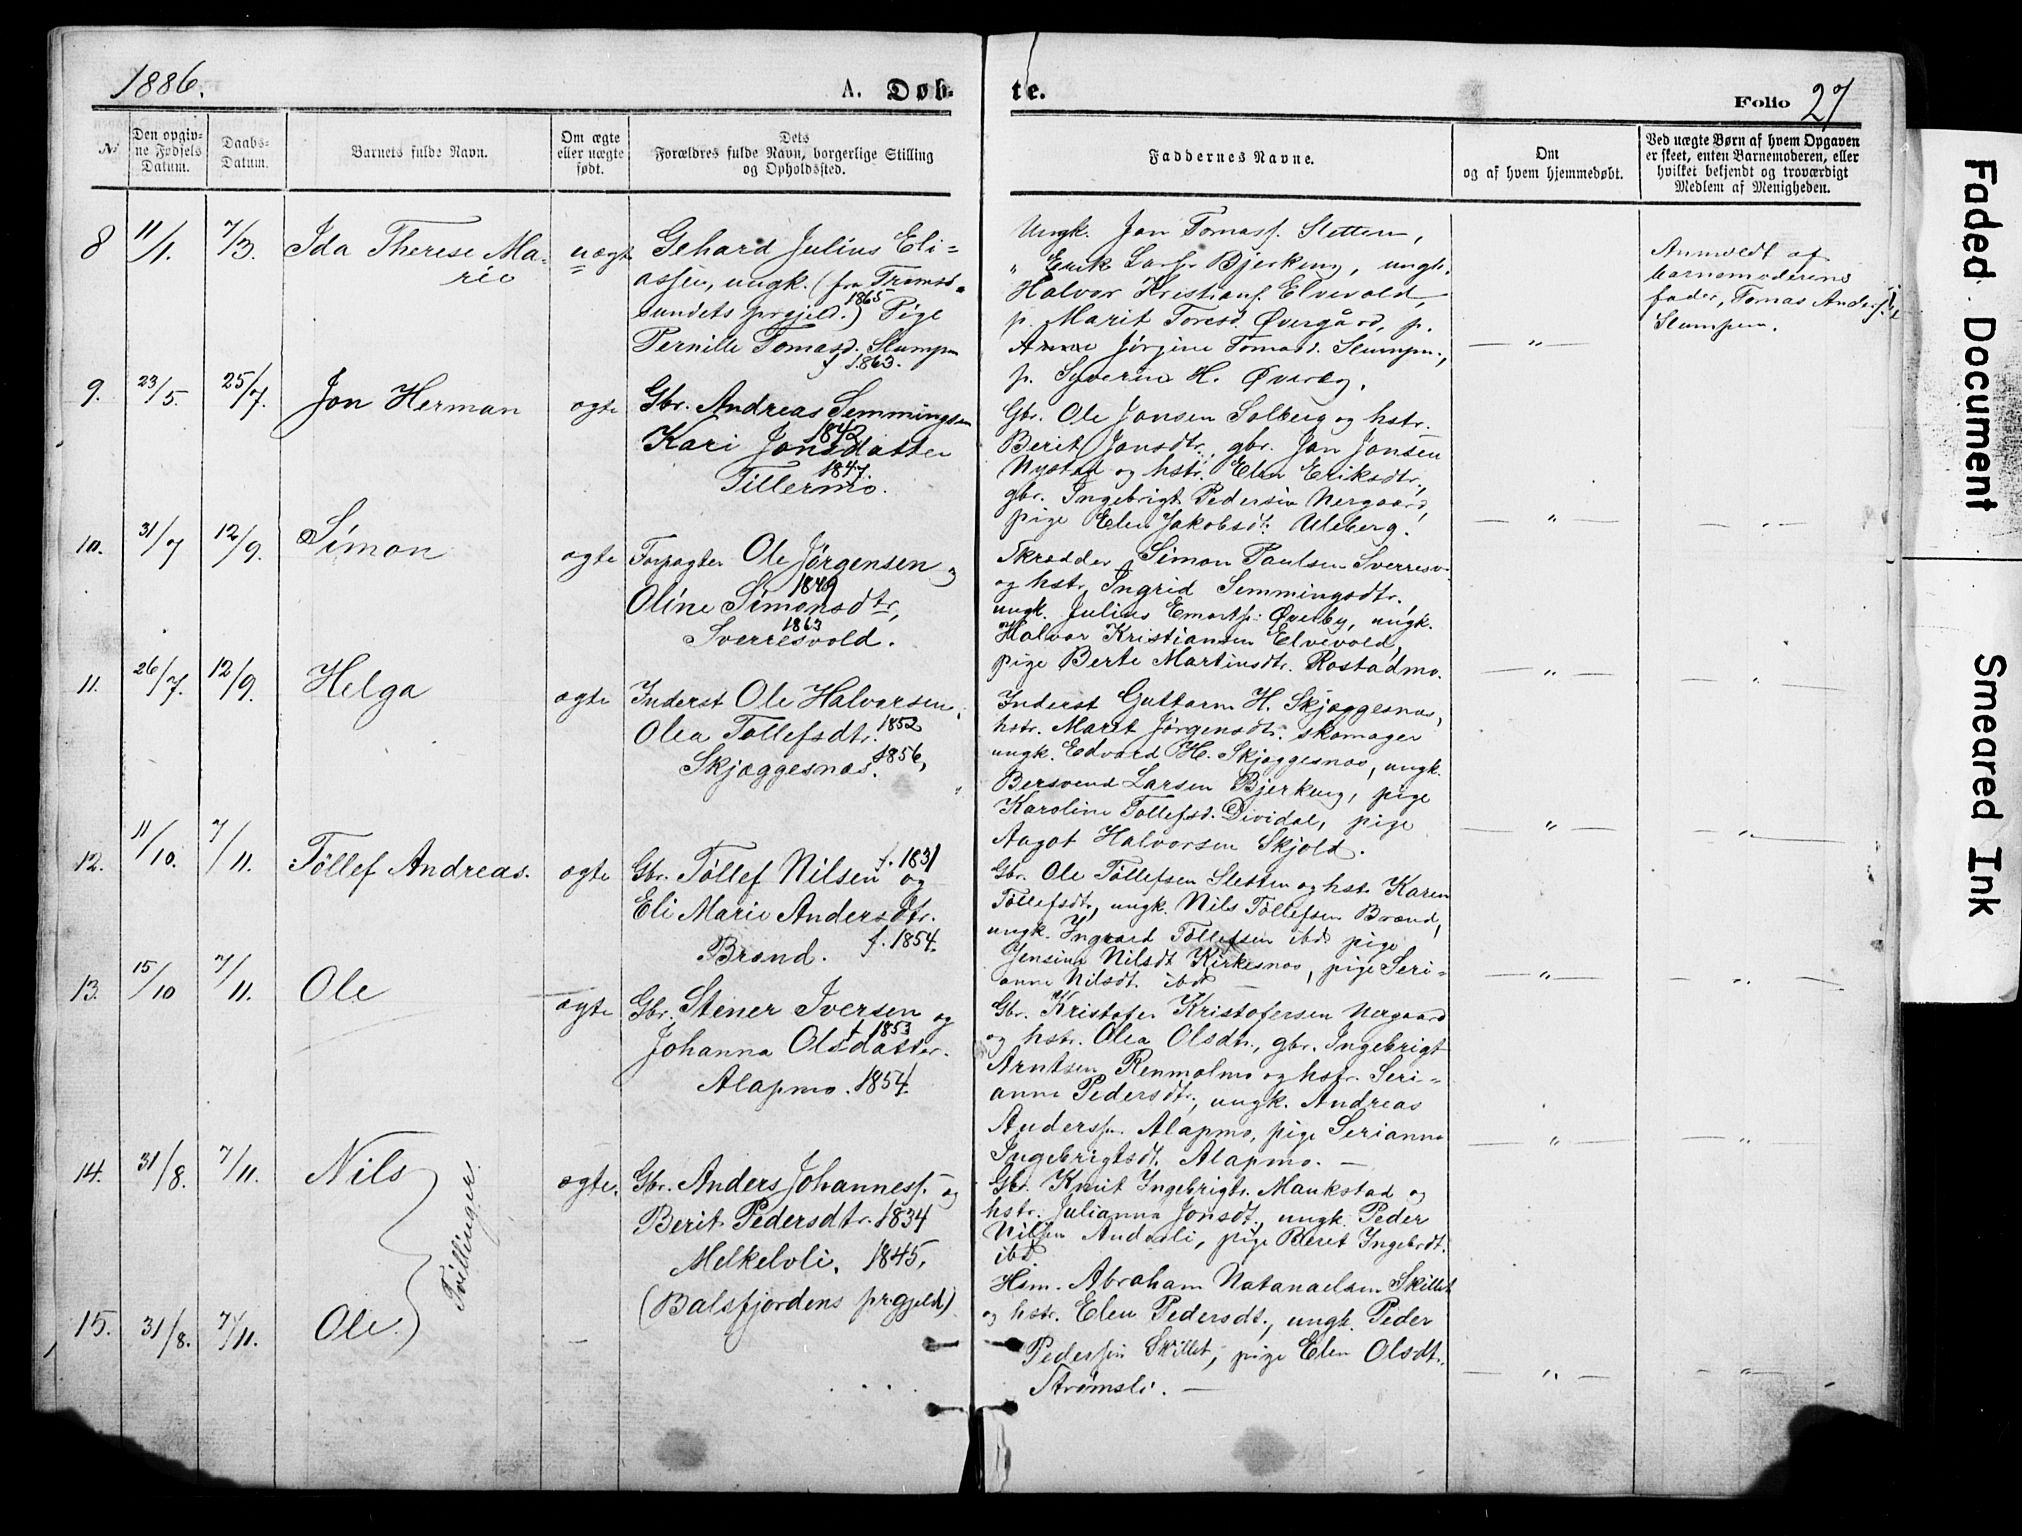 1886.
A. Døb-
te.
Folio 27
№
Den opgiv-
ne Fødsels
Datum.
Daabs-
Datum.
Barnets fulde Navn.
Om ægte
eller uægte
født.
Dets
Forældres fulde Navn, borgerlige Stilling
og Opholdssted.
Faddernes Navne.
Om
og af hvem hjemmedøbt.
Ved uægte Børn af hvem Opgaven
er skeet, enten Barnemoderen, eller
hvilket bekjendt og troværdigt
Medlem af Menigheden.
8
11/1.
7/3.
Ida Therese Ma-
rie
uægte
Gehard Julius Eli-
assen, ungk. (fra Tromsø-
sundets prgjeld.) 1865 Pige
Pernille Tomasd. Slumpen
f 1863.
Ungk. Jon Tomass. Sletten,
" Erik Larss. Bjerkeng, ungk.
Halvor Kristians. Elvevold,
p. Marit Toresd. Øvergård, p.
Jørgine Tomasd. Slumpen,
p. Syverine H. Øverby.
— " —
Anmeldt af
barnemoderens
fader, Tomas Anders.
Slumpen.
9.
23/5.
25/7.
Jon Herman
ægte
Gbr. Andreas Semmingsen
1842
Kari Jonsdatter
1847.
Tillermo.
Gbr. Ole Jonsen Solberg og hstr.
Berit Jonsdtr., gbr. Jon Jonsen
Nystad og hstr. Elen Eriksdtr.,
gbr. Ingebrigt Pedersen Nergaard,
pige Elen Jakobsdt. Uleberg.
— " —
— " —
10.
31/7
12/9.
Simon
ægte
Forpagter Ole Jørgensen og
1849
Oline Simonsdtr,
1863
Sverresvold.
Skrædder Simon Paulsen Sverresv.
og hstr. Ingrid Semmingsdtr.
ungk. Julius Øverby, ungk.
Halvor Kristiansen Elvevold,
pige Berte Martinsdtr. Rostadmo.
— " —
"
11.
26/7.
12/9.
Helga
ægte
Inderst Ole Halvorsen,
Olea Tollefsdtr. 1852
Skjæggesnæs. 1856,
Inderst Guttorm H. Skjæggesnæs,
hstr. Maret Jørgensdtr. skomager
ungk. Edvard H. Skjæggesnæs, ungk.
Bersvend Larsen Bjerkeng, pige
Karoline Tollefsd. Dividal, pige
Aagot Halvorsen Skjold.
— " —
— " —
12.
11/10.
7/11.
Tøllef Andreas.
ægte
Gbr. Tøllef Nilsen f. 1831 og
Eli Marie Andersdtr.
Brand. f. 1854.
Gbr. Ole Tøllefsen Sletten og hstr Karen
Tøllefsdtr, ungk. Nils Tøllefsen Brænd,
ungk. Ingvard Tøllefsen ibd pige
Jensine Nilsdt Kirkesnes, pige Seri-
anne Nilsdt. ibd —
— " —
— " —
13.
15/10
7/11.
Ole
ægte
Gbr. Stener Iversen og
f 1853
Johanna Olsdatter.
Alapmo. 1854.
Gbr. Kristofer Kristofersen Nergaard
og hstr. Olea Olsdtr., gbr. Ingebrigt
Arntsen Renmolmo og hstr. Seri-
anna Pedersdtr., ungk. Andreas
Anderss. Alapmo, pige Serianna
Ingebrigtsdt. Alapmo. —
— " —
— " —
14.
31/8.
7/11.
Nils
Tvillinger.
ægte.
Gbr. Anders Johanness. og
Berit Pedersdtr. 1834
Melkelvli. 1845,
(Balsfjordens prgjeld)
Gbr. Knut Ingebrigts. Maukstad og
hstr. Julianna Jonsdt., ungk. Peder
Nilsen Anderli, pige Beret Ingebrdt.
ibd
15.
31/8.
7/11.
Ole.
—
Hsm. Abraham Natanaelsen Skillet
og hstr. Elen Pedersdt., ungk. Peder
Pedersen Skillet, pige Elen Olsdt.
Strømsli. —
— " —
— " —
Faded Document
Smeared Ink